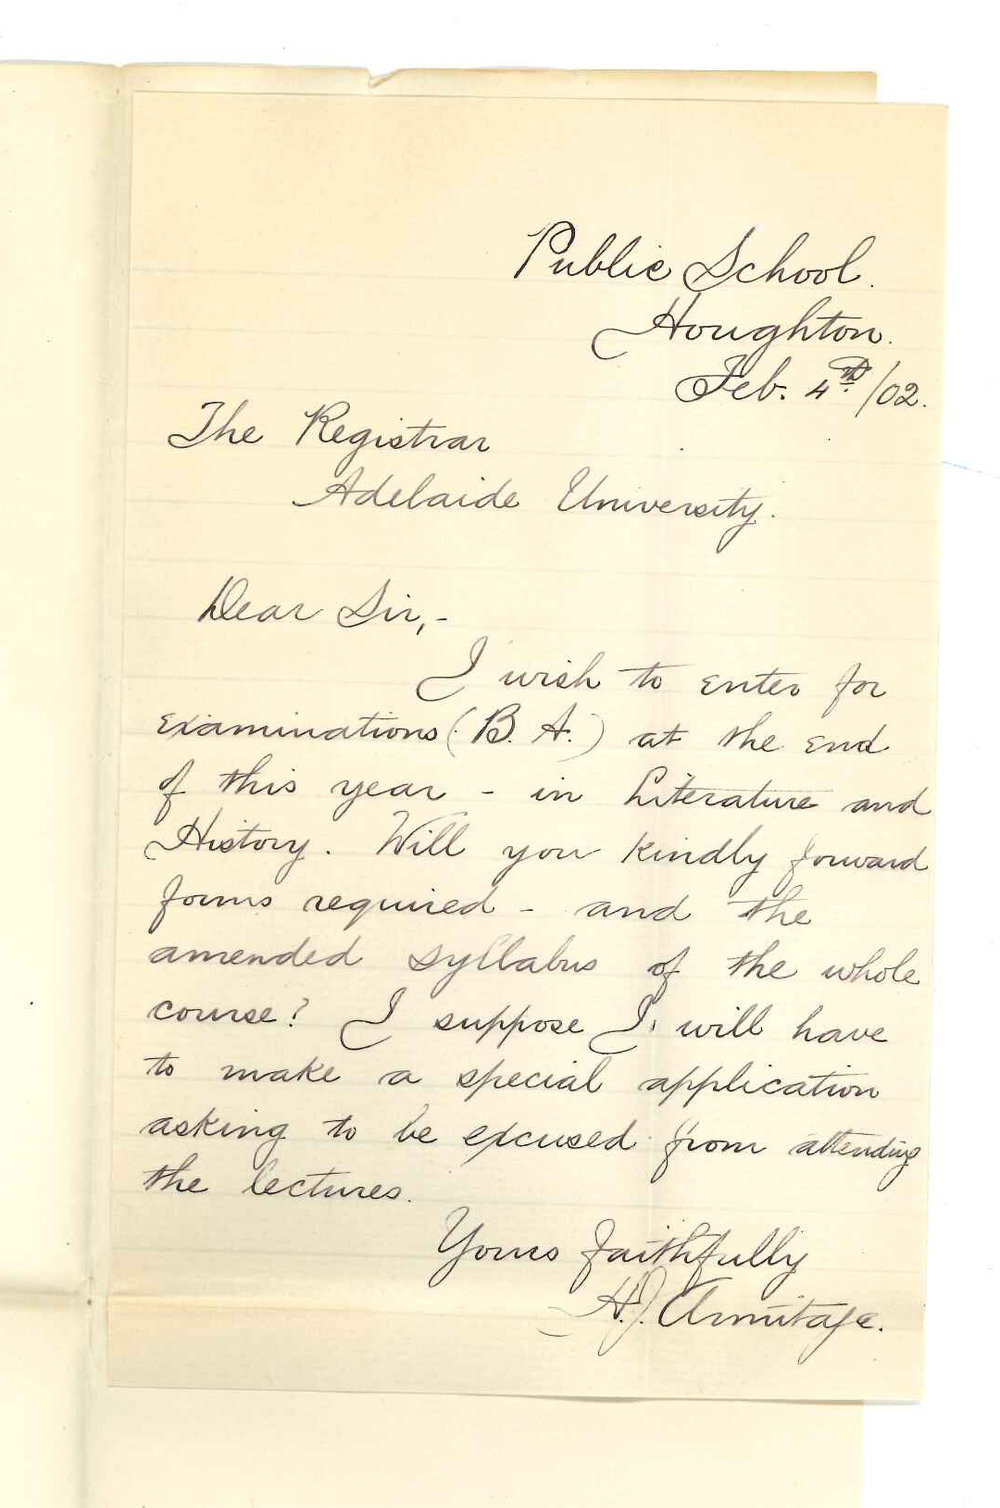 Public School.
Houghton.
Feb. 4th/02.
The Registrar
Adelaide University.
Dear Sir,-
I wish to enter for
examinations (B. A.) at the end
of this year - in Literature and
History. Will you kindly forward
forms required - and the
amended syllabus of the whole
course? I suppose I will have
to make a special application
asking to be excused from attending
the lectures.
Yours faithfully
H.J. Armitage.